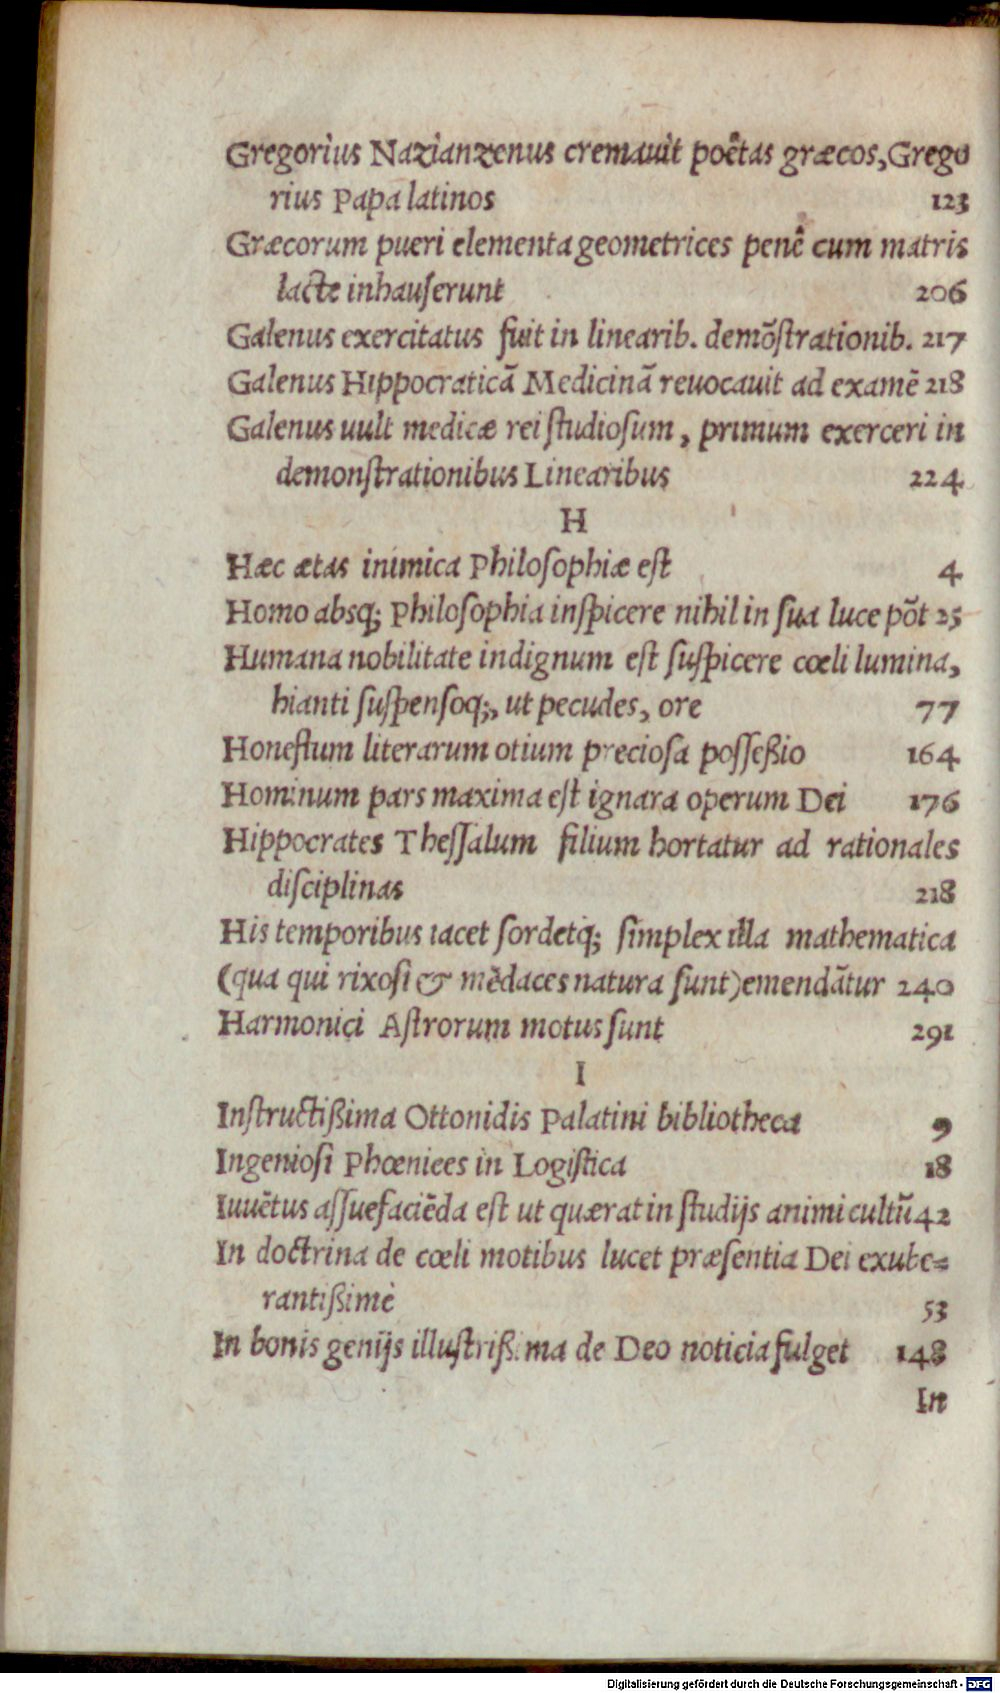 Gregorius Nazianzenus cremauit poëtas græcos, Grego
rius Papa latinos 123
Græcorum pueri elementa geometrices penè cum matris
lacte inhauſerunt 206
Galenus exercitatus fuit in linearib. demõſtrationib. 217
Galenus Hippocraticã Medicinã reuocauit ad examẽ 218
Galenus uult medicæ rei ſtudioſum, primum exerceri in
demonſtrationibus Linearibus 224
H
Hæc ætas inimica Philoſophiæ eſt 4
Homo absq; Philoſophia inſpicere nihil in ſua luce põt 25
Humana nobilitate indignum eſt ſuſpicere cœli lumina,
hianti ſuſpenſoq;, ut pecudes, ore 77
Honeſtum literarum otium precioſa poſſeßio 164
Hominum pars maxima eſt ignara operum Dei 176
Hippocrates Theſſalum filium hortatur ad rationales
diſciplinas 218
His temporibus iacet ſordetq; ſimplex illa mathematica
(qua qui rixoſi & mẽdaces natura ſunt) emendãtur 240
Harmonici Aſtrorum motus ſunt 291
I
Inſtructißima Ottonidis Palatini bibliotheca 9
Ingenioſi Phœnices in Logiſtica 18
Iuuẽtus aſſuefaciẽda eſt ut quærat in ſtudijs animi cultũ 42
In doctrina de cœli motibus lucet præſentia Dei exube=
rantißimè 53
In bonis genijs illuſtrißima de Deo noticia fulget 148
In
Digitalisierung gefördert durch die Deutsche Forschungsgemeinschaft - DFG